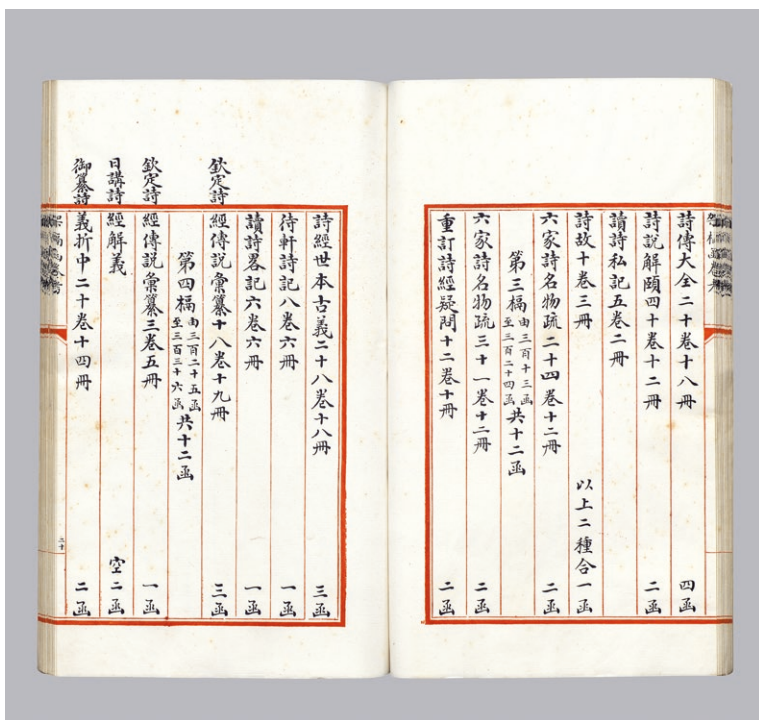 詩傳大全二十卷十八冊 四函
詩說解頤四十卷十二冊 二函
讀詩私記五卷二冊
詩故十卷三冊 以上二種合一函
六家詩名物疏二十四卷十二冊 二函
第三槅由三百十三函至三百二十四函共十二函
六家詩名物疏三十一卷十二冊 二函
重訂詩經疑問十二卷十冊 二函
詩經世本古義二十八卷十八冊 三函
待軒詩記八卷六冊 一函
讀詩畧記六卷六冊 一函
欽定詩經傳說彙纂十八卷十九冊 三函
第四槅由三百二十五函至三百三十六函共十二函
欽定詩經傳說彙纂三卷五冊 一函
日講詩經解義 空二函
御纂詩義折中二十卷十四冊 二函
三十